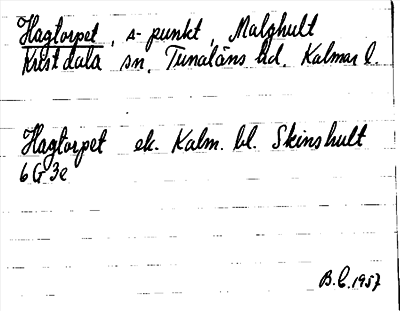 Hagtorpet, s- punkt, Malghult
Kristdala sn, Tunaläns hd. Kalmar l.
Hagtorpet ek. Kalm. bl. Skinshult
6G 3e
B.C. 1957